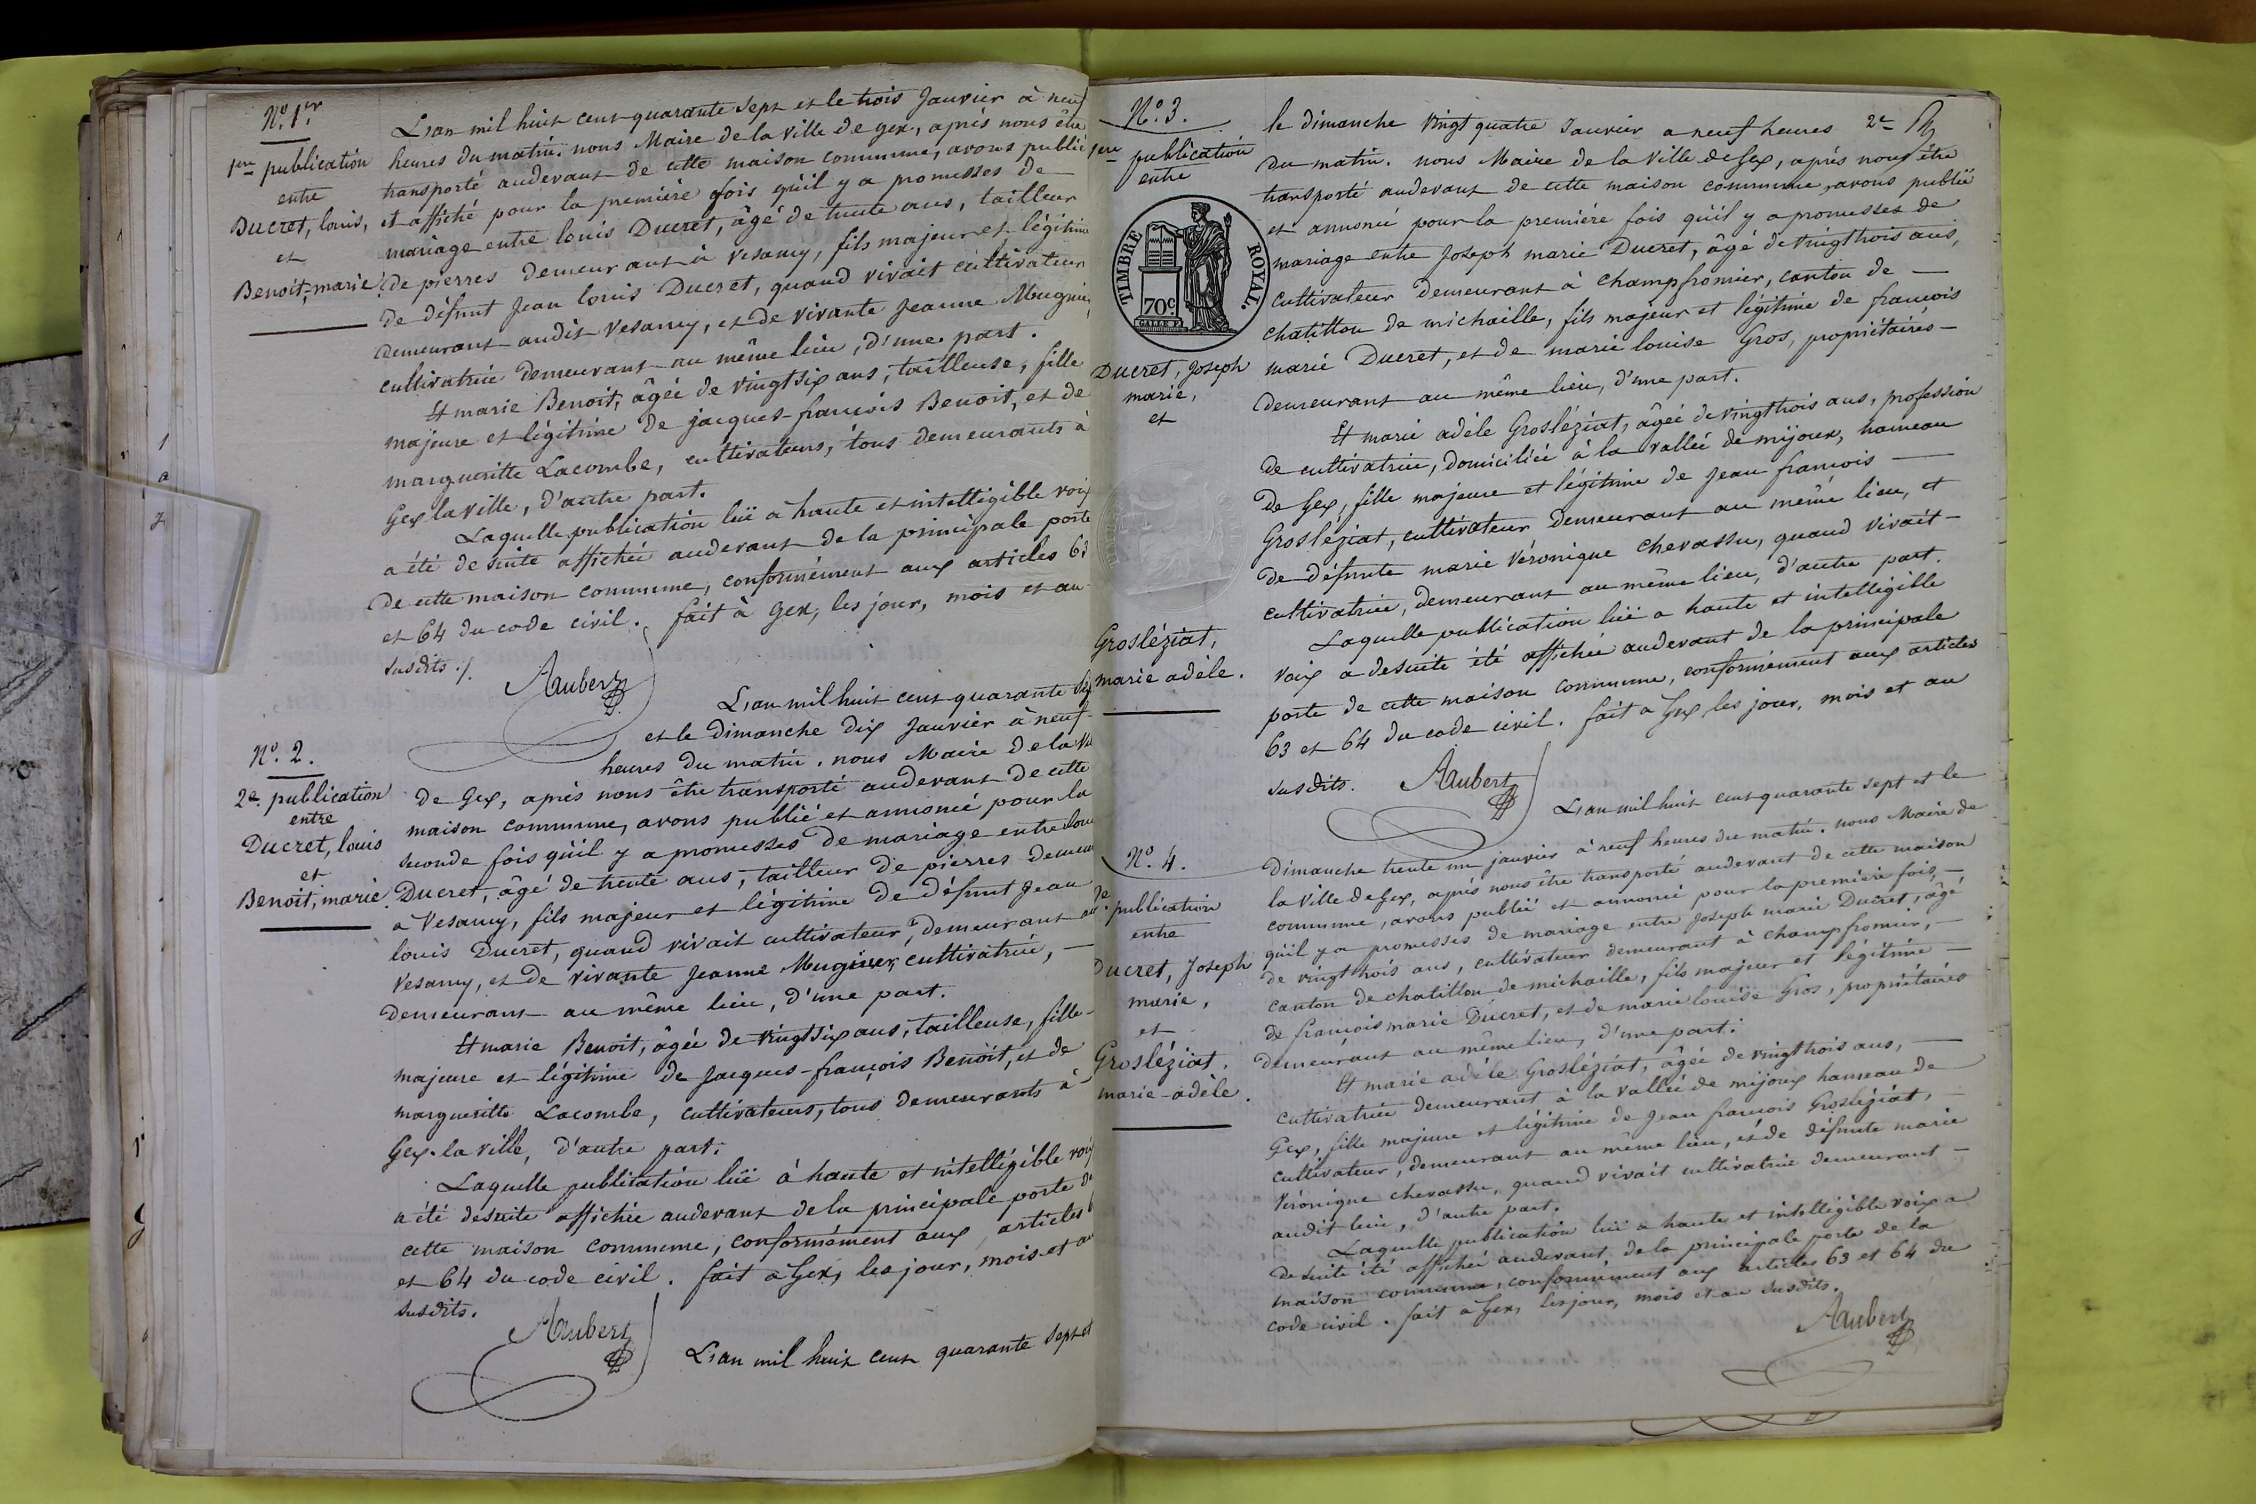 N.º 1.er
1.ere publication
entre
Ducret, louis,
et
Benoit, marie.
L'an mil huit cent quarante sept et le trois Janvier à neuf
heures du matin. nous Maire de la ville de gex, après nous être
transporté audevant de cette maison commune, avons publié
et affiché pour la première fois qu'il y a promesses de
mariage entre louis Ducret, âgé de trente ans, tailleur
de pierres demeurant à vesancy, fils majeur et légitime
de défunt Jean louis Ducret, quand vivait cultivateur
demeurant audit vesancy, et de vivante Jeanne Mugnier,
cultivatrice demeurant au même lieu, d'une part.
Et marie Benoit, âgée de vingt six ans, tailleuse, fille
majeure et légitime de jacques-françois Benoit, et de
margueritte Lacombe, cultivateurs, tous demeurants à
Gex la ville, d'autre part.
Laquelle publication luë à haute et intelligible voix
a été desuite affichée audevant de la principale porte
de cette maison commune, conformément aux articles 63
et 64 du code civil. fait à Gex, les jour, mois et an
susdits./.
Aubert
N.º 2.
2.e publication
entre
Ducret, louis
et
Benoit, marie.
L'an mil huit cent quarante sept
et le dimanche dix Janvier à neuf
heures du matin. nous Maire de la
de Gex, après nous être transporté audevant de cette
maison commune, avons publié et annoncé pour la
seconde fois qu'il y a promesses de mariage entre louis
Ducret, âgé de trente ans, tailleur de pierres
à Vesancy, fils majeur et légitime de défunt Jean
louis Ducret, quand vivait cultivateur, demeurant
vesancy, et de vivante Jeanne Mugnier, cultivatrice, —
demeurant au même lieu, d'une part.
Et marie Benoit, âgée de vingt six ans, tailleuse, fille
majeure et légitime de Jacques-françois Benoit, et de
margueritte Lacombe, cultivateurs, tous demeurants à
Gex-la ville, d'autre part.
Laquelle publication luë à haute et intelligible voix
a été desuite affichée audevant de la principale porte de
cette maison commune, conformément aux articles 6
et 64 du code civil. fait à Gex, les jour, mois et an
susdits.
Aubert
L'an mil huit cent quarante sept et
N.º 3.
1ere publication
entre
TIMBRE ROYAL.
70c
Ducret, Joseph
marie,
et
Grosléziat,
marie adèle.
le dimanche vingt quatre Janvier a neuf heures 2e
du matin. nous Maire de la ville de Gex, après nous être
transporté audevant de cette maison commune, avons publié
et annoncé pour la première fois qu'il y a promesses de
mariage entre Joseph marie Ducret, âgé de vingt trois ans,
cultivateur demeurant à Champfromier, canton de —
chatillon de michaille, fils majeur et légitime de françois
marie Ducret, et de marie louise Gros, propriétaires —
demeurant au même lieu, d'une part.
Et marie adèle Grosléziat, âgée de vingt trois ans, profession
de cultivatrice, domiciliée à la vallée de mijoux, hameau
de Gex, fille majeure et légitime de Jean françois —
Grosléziat, cultivateur demeurant au même lieu, et
de défunte marie véronique Chevassu, quand vivait —
cultivatrice, demeurant au même lieu, d'autre part.
Laquelle publication luë a haute et intelligible
voix a desuite été affichée audevant de la principale
porte de cette maison commune, conformément aux articles
63 et 64 du code civil. fait a Gex les jour, mois et an
susdits.
Aubert
N.º 4.
2e. publication
entre
Ducret, Joseph
marie,
et
Grosléziat.
marie-adèle.
L'an mil huit cent quarante sept et le
Dimanche trente un janvier à neuf heures du matin. nous Maire de
la ville de Gex, après nous être transporté audevant de cette maison
commune, avons publié et annoncé pour la première fois —
qu'il y a promesses de mariage entre Joseph marie Ducret, âgé
de vingt trois ans, cultivateur demeurant à champfromier, —
canton de chatillon de michaille, fils majeur et légitime —
de françois marie Ducret, et de marie louise Gros, propriétaires
demeurant au même lieu, d'une part.
Et marie adèle Grosléziat, âgée de vingt trois ans, —
cultivatrice demeurant à la vallée de mijoux hameau de
Gex, fille majeure et légitime de Jean françois Grosléziat, —
cultivateur, demeurant au même lieu, et de défunte marie
véronique chevassu, quand vivait cultivatrice demeurant —
audit lieu, d'autre part.
Laquelle publication luë a haute et intelligible voix a
desuite été affichée audevant de la principale porte de la
maison commune, conformément aux articles 63 et 64 du
code civil. fait a Gex, les jour, mois et an susdits.
Aubert